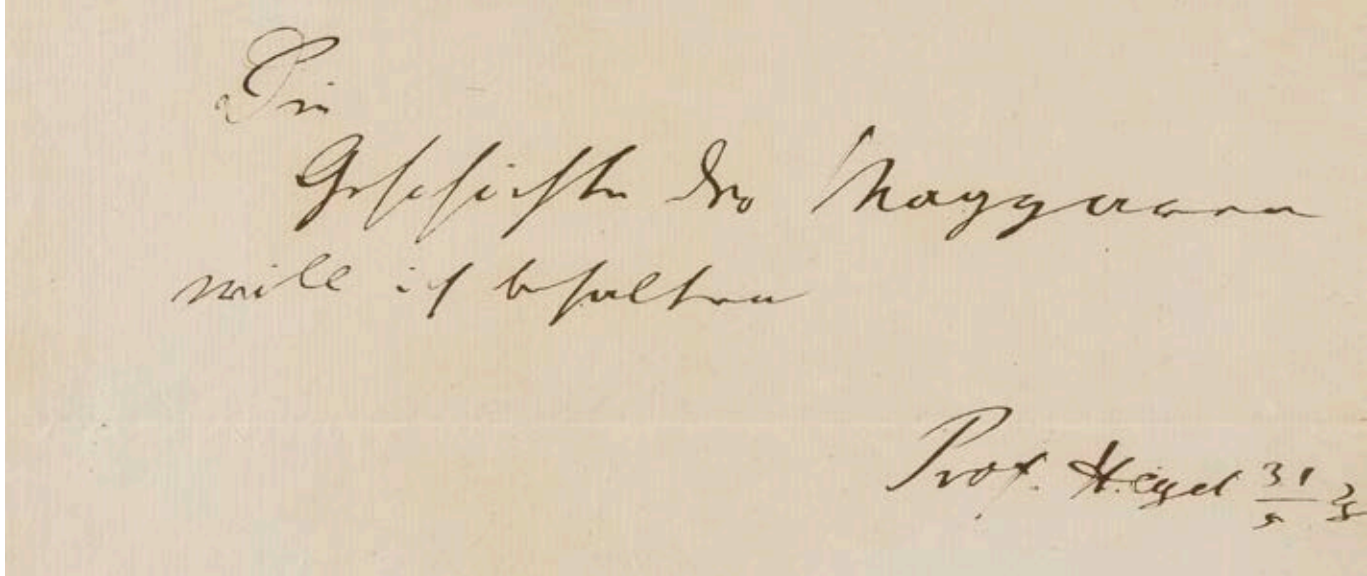 Die
Geschichte der Magyaren
will ich behalten
Prof. Hegel 31/5 25